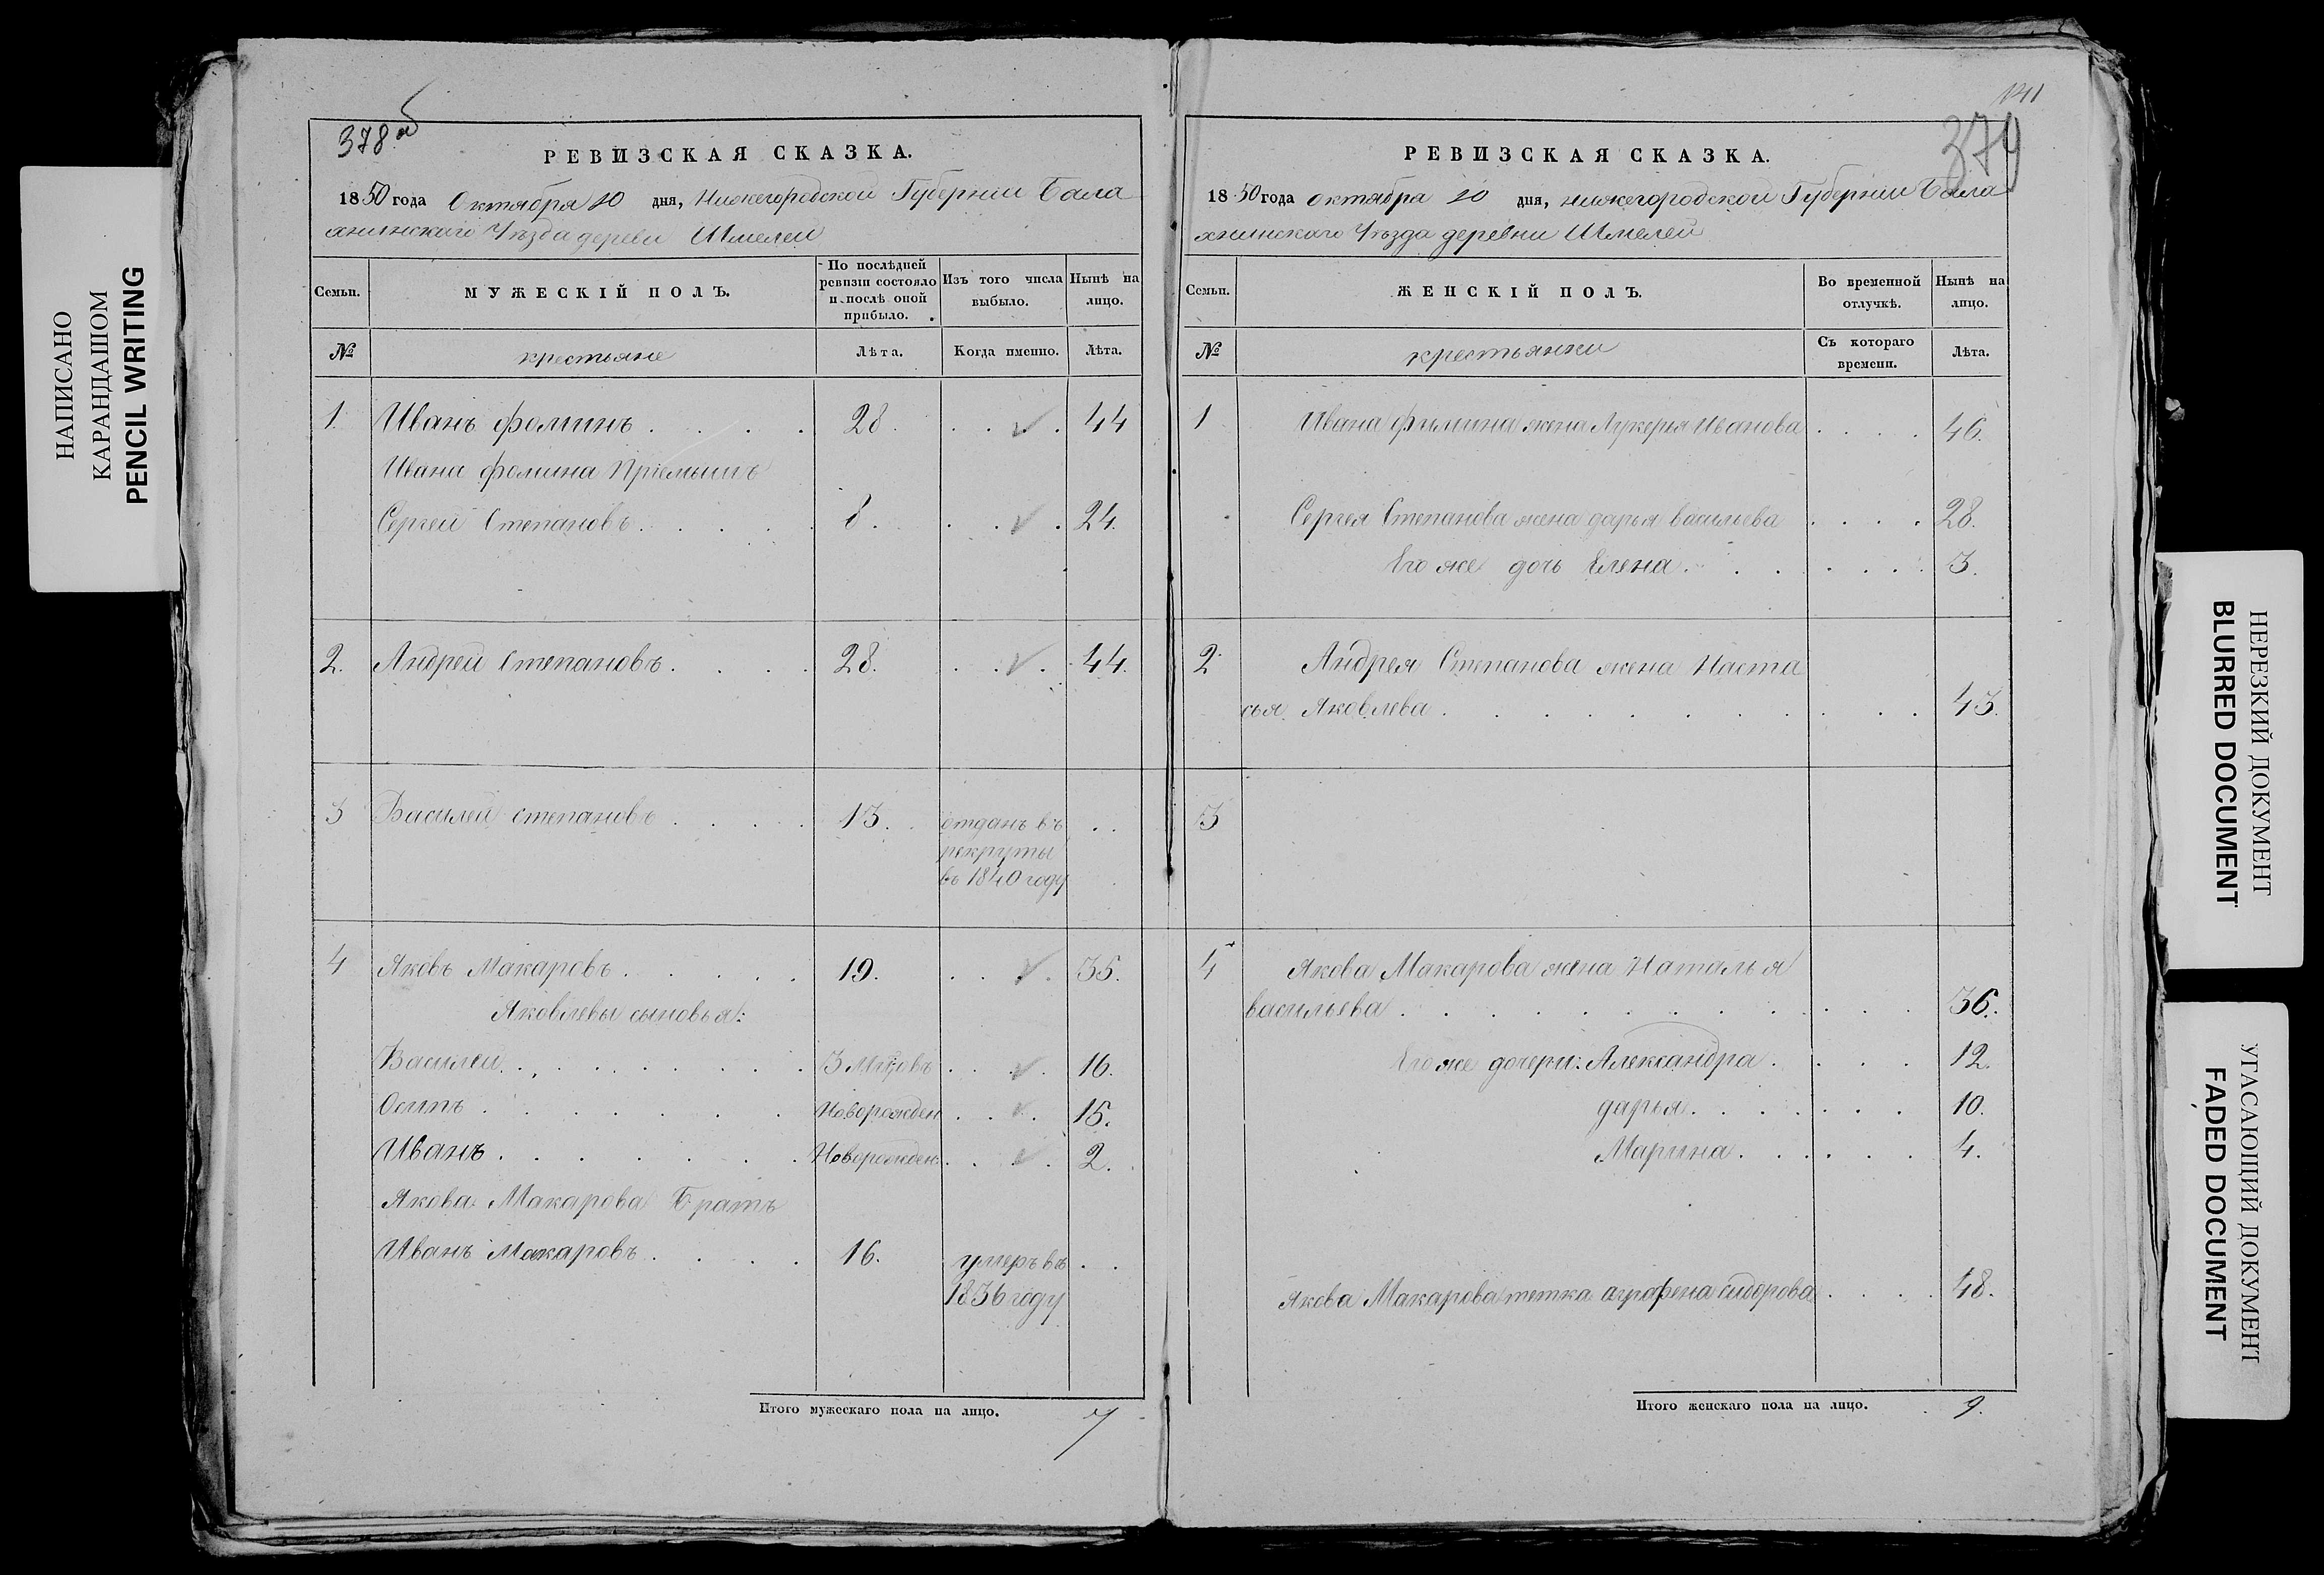 НАПИСАНО
КАРАНДАШОМ
PENCIL WRITING
378 об
РЕВИЗСКАЯ СКАЗКА.
1850 года Октября 10 дня, Нижегородской Губернии Бала
хнинскаго Уѣзда деревни Шмелей
Семьи. МУЖЕСКІЙ ПОЛЪ. По послѣдней ревизіи состояло и послѣ оной прибыло. Изъ того числа выбыло. Нынѣ на лицо.
№ крестьяне Лѣта. Когда именно. Лѣта.
1 Иванъ фоминъ . . . . 28. . . . 44
Ивана фомина Пріемышъ
Сергей Степановъ . . . . 8. . . . 24.
2. Андрей Степановъ . . . . 28. . . . 44.
3 Василей степановъ . . . . 13. отданъ въ . .
рекруты
въ 1840 году
4 Яковъ Макаровъ . . . . 19. . . . 35.
Яковлевы сыновья:
Василей . . . . . . . 3 Мцовъ . . . 16.
Осипъ . . . . . . . Новорожден . . . 15.
Иванъ . . . . . . . Новорожден: . . . 2.
Якова Макарова Братъ
Иванъ Макаровъ . . . . 16. умеръ въ . .
1836 году
Итого мужескаго пола на лицо. 7
141
379
РЕВИЗСКАЯ СКАЗКА.
1850 года октября 10 дня, нижегородской Губернии Бала
хнинскаго Уѣзда деревни Шмелей
Семьи. ЖЕНСКІЙ ПОЛЪ. Во временной отлучкѣ. Нынѣ на лицо.
№ крестьянки Съ котораго времени. Лѣта.
1 Ивана Фимина жена Лукерья Иванова . . . . 46.
Сергея Степанова жена дарья васильева . . . . 28.
Его же дочь Елена . . . . . . 3.
2 Андрея Степанова жена Наста
сья Яковлева . . . . . . . . 43.
3
4 Якова Макарова жена Наталья
васильева . . . . . . . . 36.
Его же дочери: Александра . . . . 12.
дарья . . . . . . 10.
Марина . . . . . 4.
Якова Макарова тетка аграфена сидорова . . . . 48.
Итого женскаго пола на лицо. 9.
НЕРЕЗКИЙ ДОКУМЕНТ
BLURRED DOCUMENT
УГАСАЮЩИЙ ДОКУМЕНТ
FADED DOCUMENT